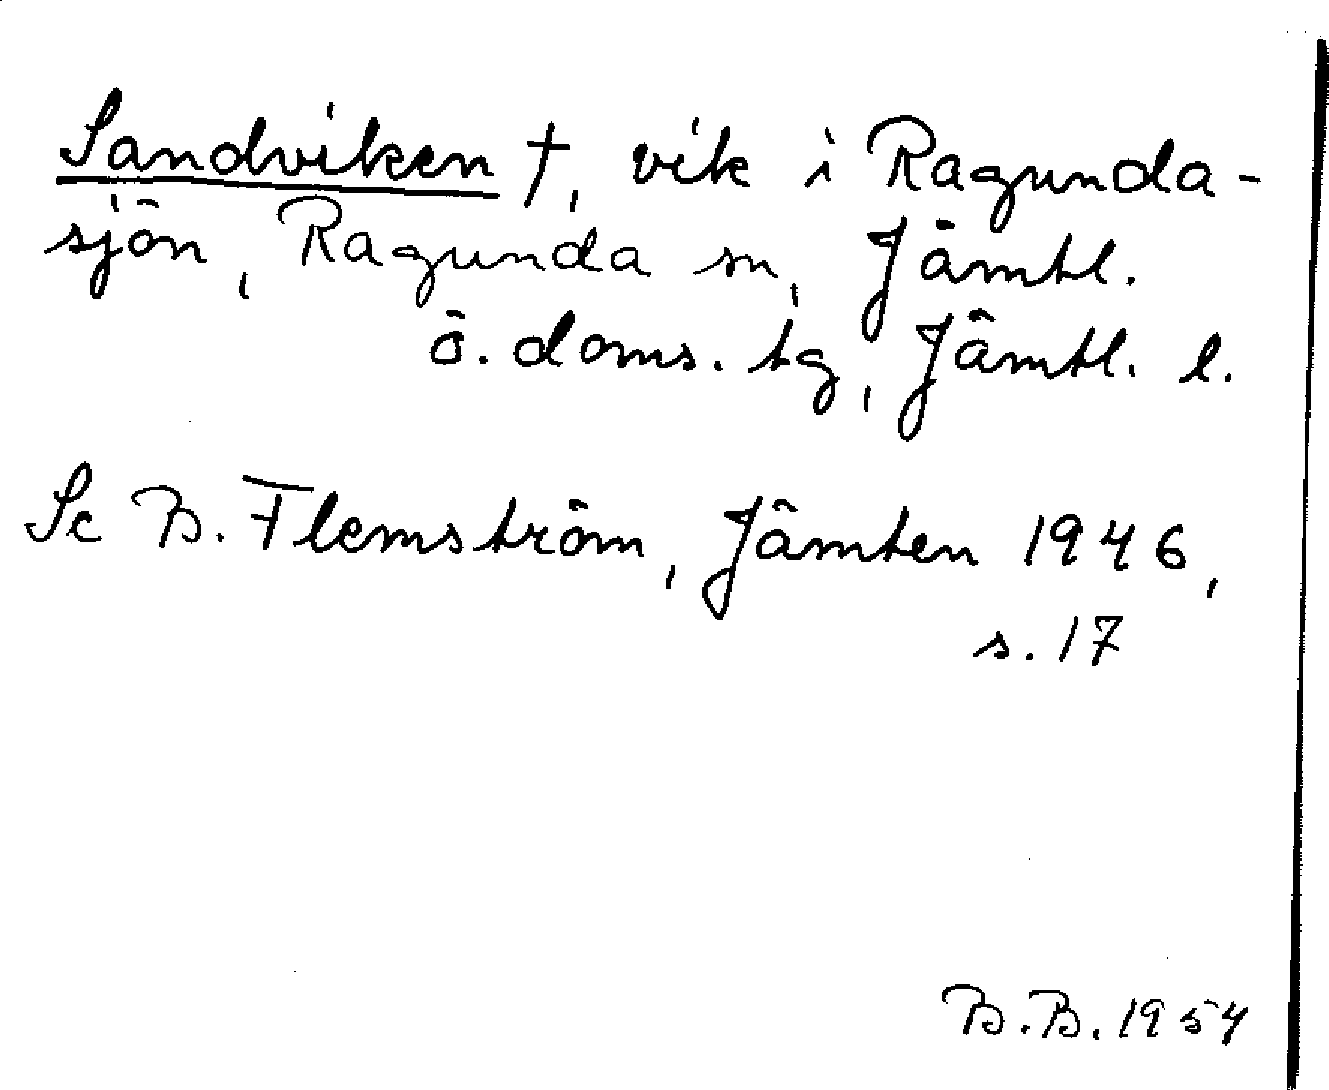 Sandviken †, vik i Ragunda-
sjön, Ragunda sn, Jämtl.
ö. doms. tg, Jämtl. l.
Se B. Flemström, Jämten 1946,
s. 17
B.B. 1954